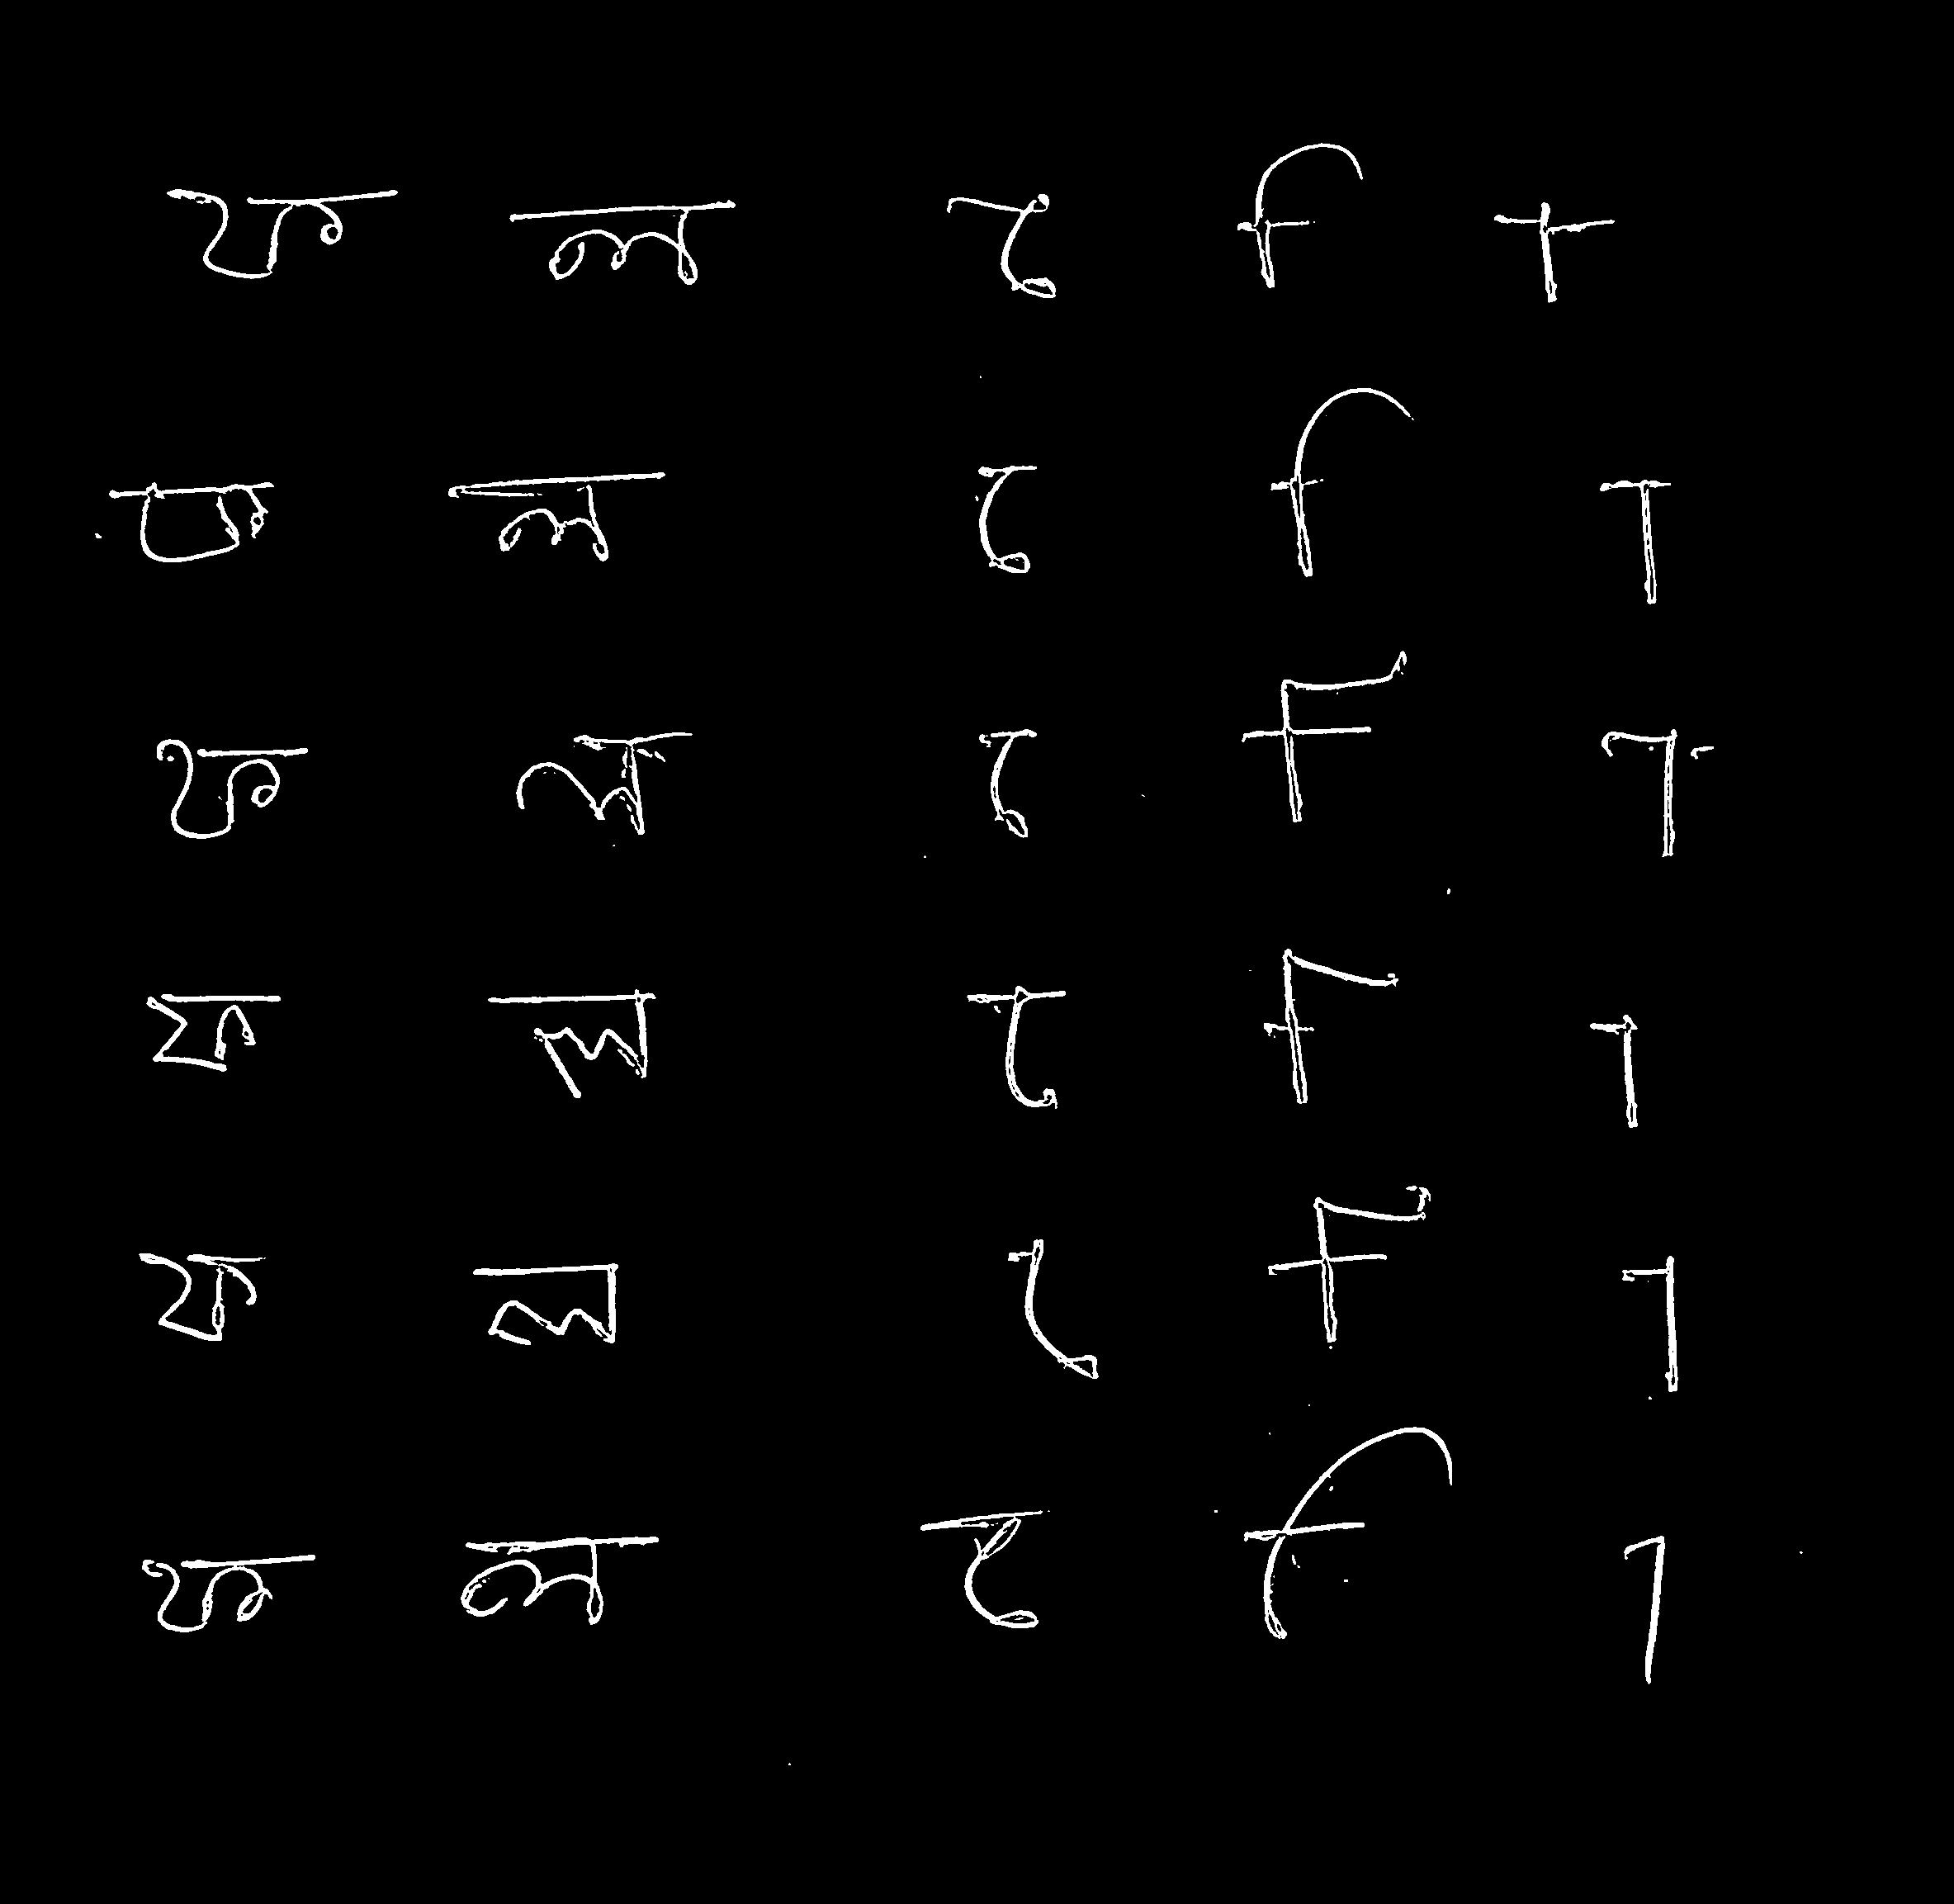 ফ ল ে ি া
ফ ল ে ি া
ফ ল ে ি া
ফ ল ে ি া
ফ ল ে ি া
ফ ল ে ি া